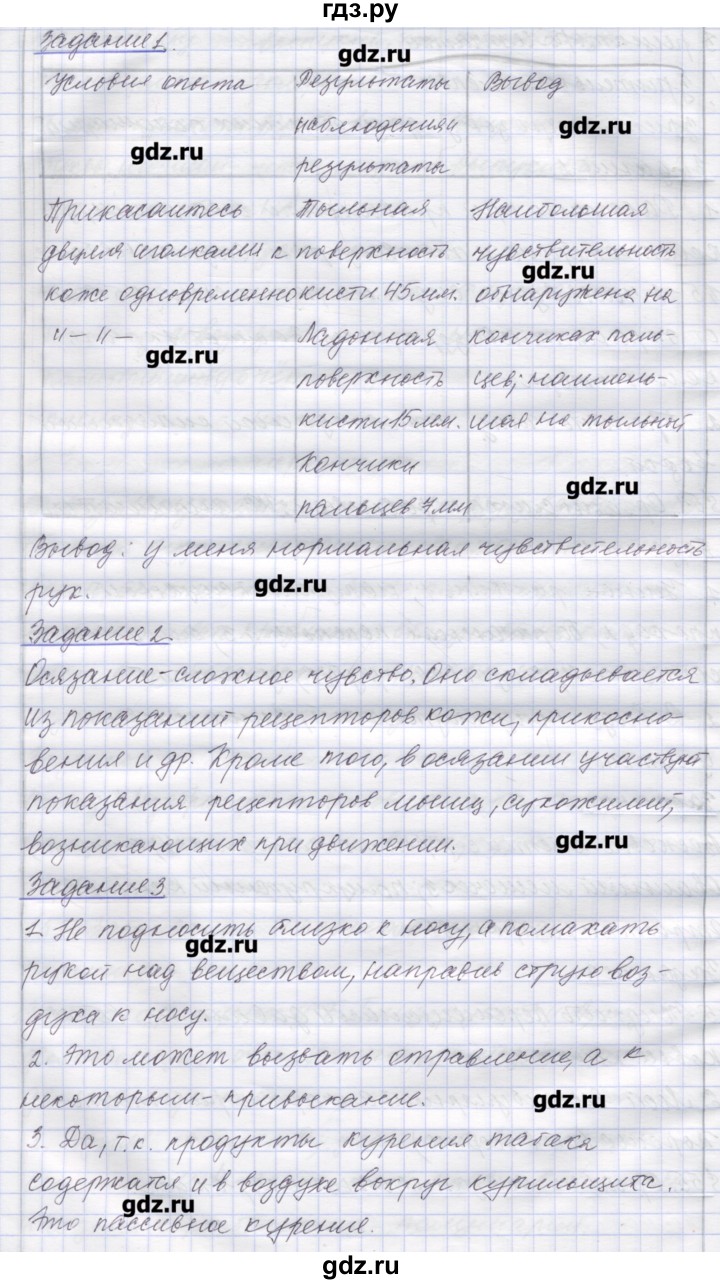 гдз.ру
Задание 1.
gdz.ru
Условия опыта Результаты Вывод
наблюдения и
gdz.ru
gdz.ru
результаты
Прикасайтесь тыльная Наибольшая
двумя иголками к поверхность чувствительность
gdz.ru
коже одновременно кисти 45мм. обнаружена на
"—"— Ладонная кончиках паль-
gdz.ru
поверхность цев; наимень-
кисти 15мм. шая на тыльной
Кончики
gdz.ru
пальцев 7мм
Вывод: у меня нормальная чувствительность
gdz.ru
рук.
Задание 2.
Осязание-сложное чувство. Оно складывается
из показаний рецепторов кожи, прикосно-
вения и др. Кроме того, в осязании участвуют
показания рецепторов мышц, сухожилий,
возникающих при движении.
gdz.ru
Задание 3
1. Не подносить близко к носу, а помахать
gdz.ru
рукой над веществом, направив струю воз-
духа к носу.
2. Это может вызвать отравление, а к
некоторым- привыкание.
gdz.ru
3. Да, т.к. продукты курения табака
содержатся и в воздухе вокруг курильщика.
gdz.ru
Это пассивное курение.
gdz.ru